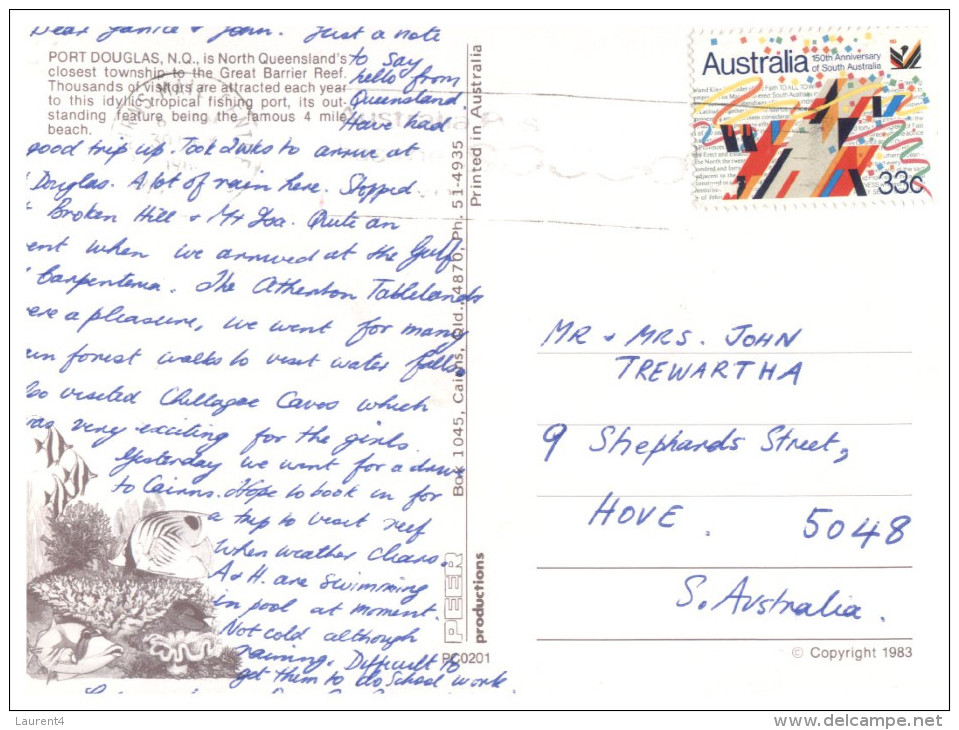 Dear Janice & John. Just a note
PORT DOUGLAS, N.Q., is North Queensland's
closest township to the Great Barrier Reef.
Thousands of visitors are attracted each year
to this idyllic tropical fishing port, its out-
standing feature being the famous 4 mile
beach.
to say
hello from
Queensland.
Have had
good trip up. Took 2wks to arrive at
Douglas. A lot of rain here. Stopped
Broken Hill & Mt Isa. Quite an
ent when we arrived at the Gulf
Carpenteria. The Atherton Tablelands
ere a pleasure, we went for many
forest walks to visit water falls
so visited Chillagoe Caves which
was very exciting for the girls.
Yesterday we went for a drive
to Cairns. Hope to book in for
a trip to visit reef
when weather clears.
A & H. are swimming
in pool at moment.
Not cold although
raining. Difficult to
get them to do School work
Box 1045, Cairns, Qld., 4870, Ph. 51-4935
Printed in Australia
PEER
productions
PC0201
Australia
150th Anniversary
of South Australia
33c
MR & MRS. JOHN
TREWARTHA
9 Shephards Street,
HOVE. 5048
S. Australia.
© Copyright 1983
Laurent4
delcampe.net